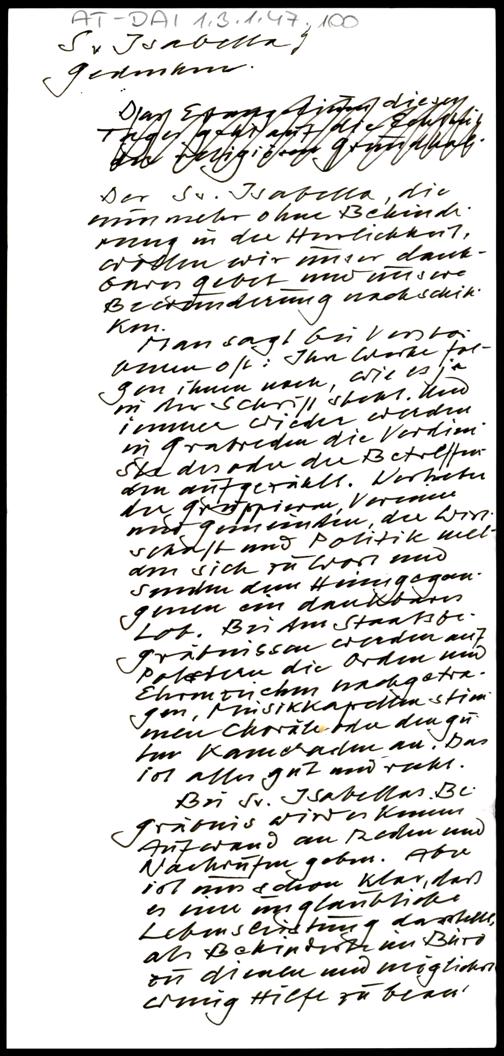 AT-DAI 1.3.1.47.100
Sr. Isabella
gedenken.
Das Evangelium dieses
Tages geht auf die
der religiösen Grundhal-
Der Sr. Isabella, die
nunmehr ohne Behinde-
rung in der Herrlichkeit,
wollen wir unser dank-
bares Gebet und unsere
Bewunderung nachschik-
ken.
Man sagt bei Verstor-
benen oft: Ihre Werke fol-
gen ihnen nach, wie es ja
in der Schrift steht. Und
immer wieder werden
in Grabreden die Verdien-
ste des oder der Betreffen-
den aufgezählt. Vertreter
der Gruppieren, Vereine
und Gemeinden, der Wirt-
schaft und Politik mel-
den sich zu Wort und
senden dem Heimgegan-
genen ein dankbares
Lob. Bei den Staatsbe-
gräbnissen werden auf
Polstern die Orden und
Ehrenzeichen nachgetra-
gen, Musikkapellen stim-
men Choräle oder den gu-
ten Kameraden an. Das
ist alles gut und recht.
Bei Sr. Isabellas Be-
gräbnis wird es keinen
Aufwand an Reden und
Nachrufen geben. Aber
ist uns schon klar, daß
es eine unglaubliche
Lebensleistung darstellt,
als Behinderte im Büro
zu dienen und möglichst
wenig Hilfe zu bean-